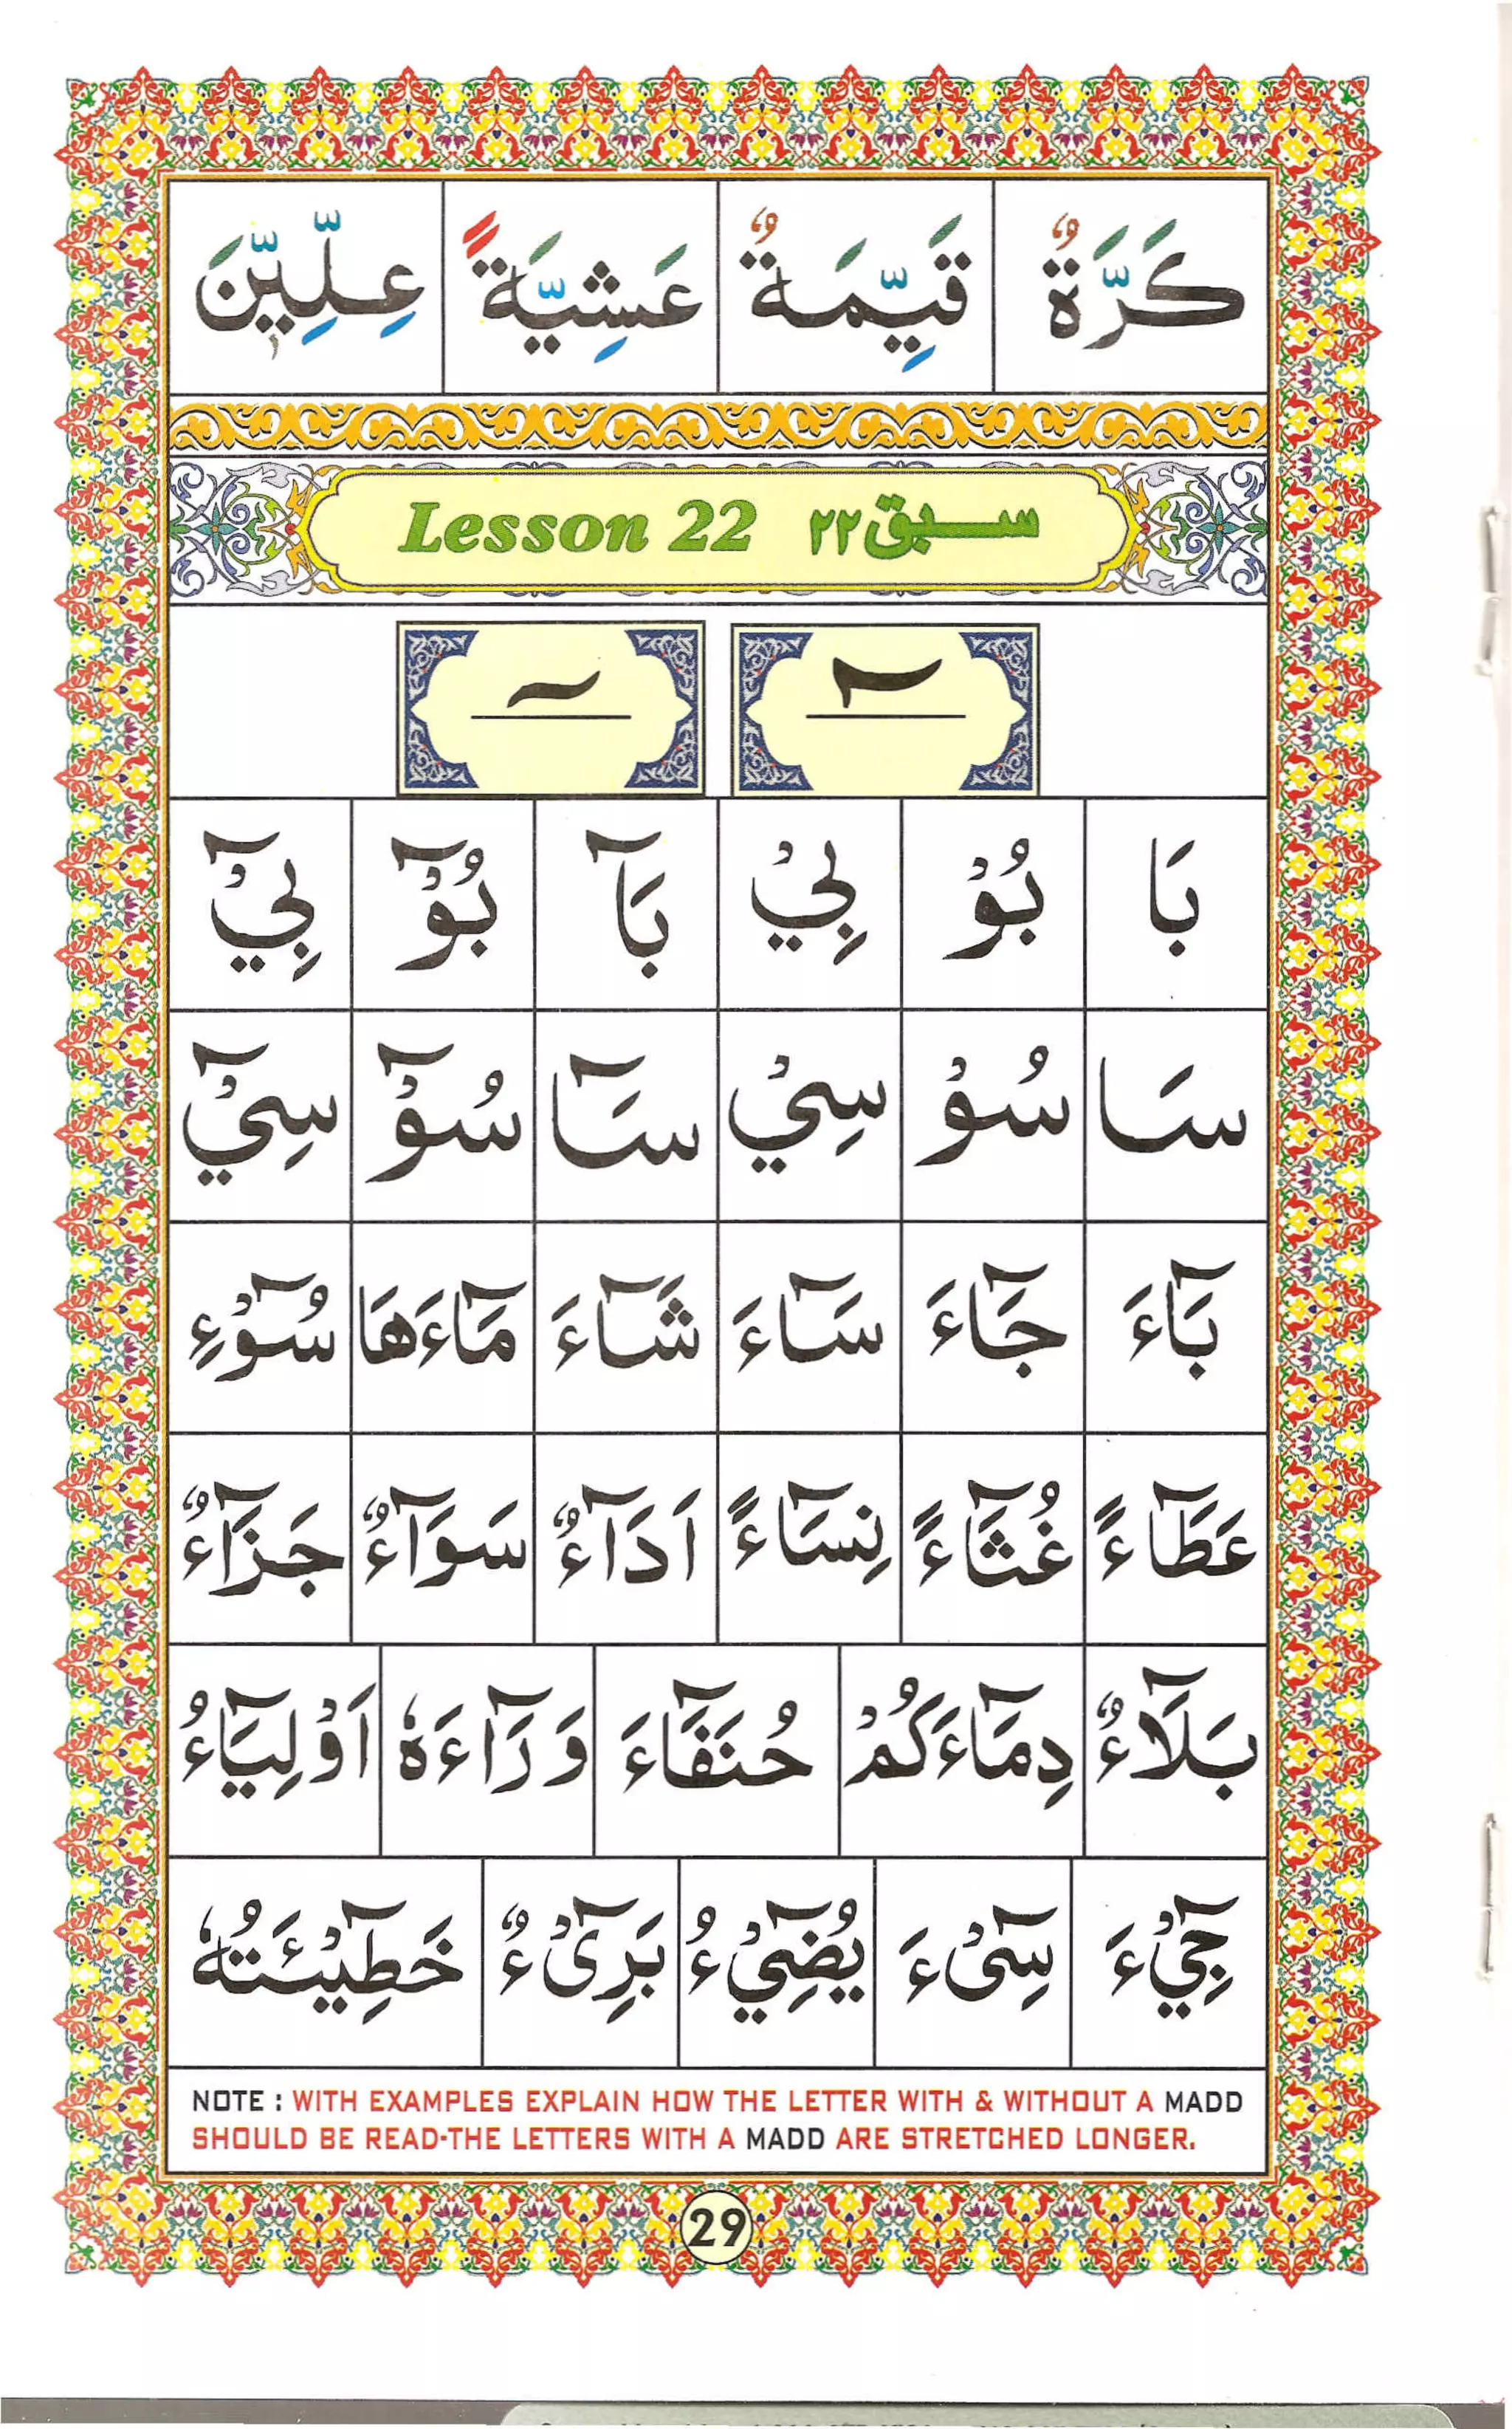 كَرَّةٌ قَيِّمَةٌ عَشِيَّةً عِلِّيِّيْنَ
Lesson 22 سبق ٢٢
بَا بُوْ بِيْ بَآ بُوْٓ بِيْٓ
سَا سُوْ سِيْ سَآ سُوْٓ سِيْٓ
بَآءَ جَآءَ سَآءَ شَآءَ مَآءَهَا سُوْٓءِ
عَطَآءً غُثَآءً نِسَآءً اَدَآءٌ سَوَآءٌ جَزَآءٌ
بَلَآءٌ دِمَآءَكُمْ حُنَفَآءَ وَرَآءَهٗ اَوْلِيَآءُ
جِيْٓءَ سِیْٓءَ يُضِيْٓءُ بَرِیْٓءٌ خَطِيْٓـَٔتُهٗ
NOTE : WITH EXAMPLES EXPLAIN HOW THE LETTER WITH & WITHOUT A MADD
SHOULD BE READ-THE LETTERS WITH A MADD ARE STRETCHED LONGER.
29